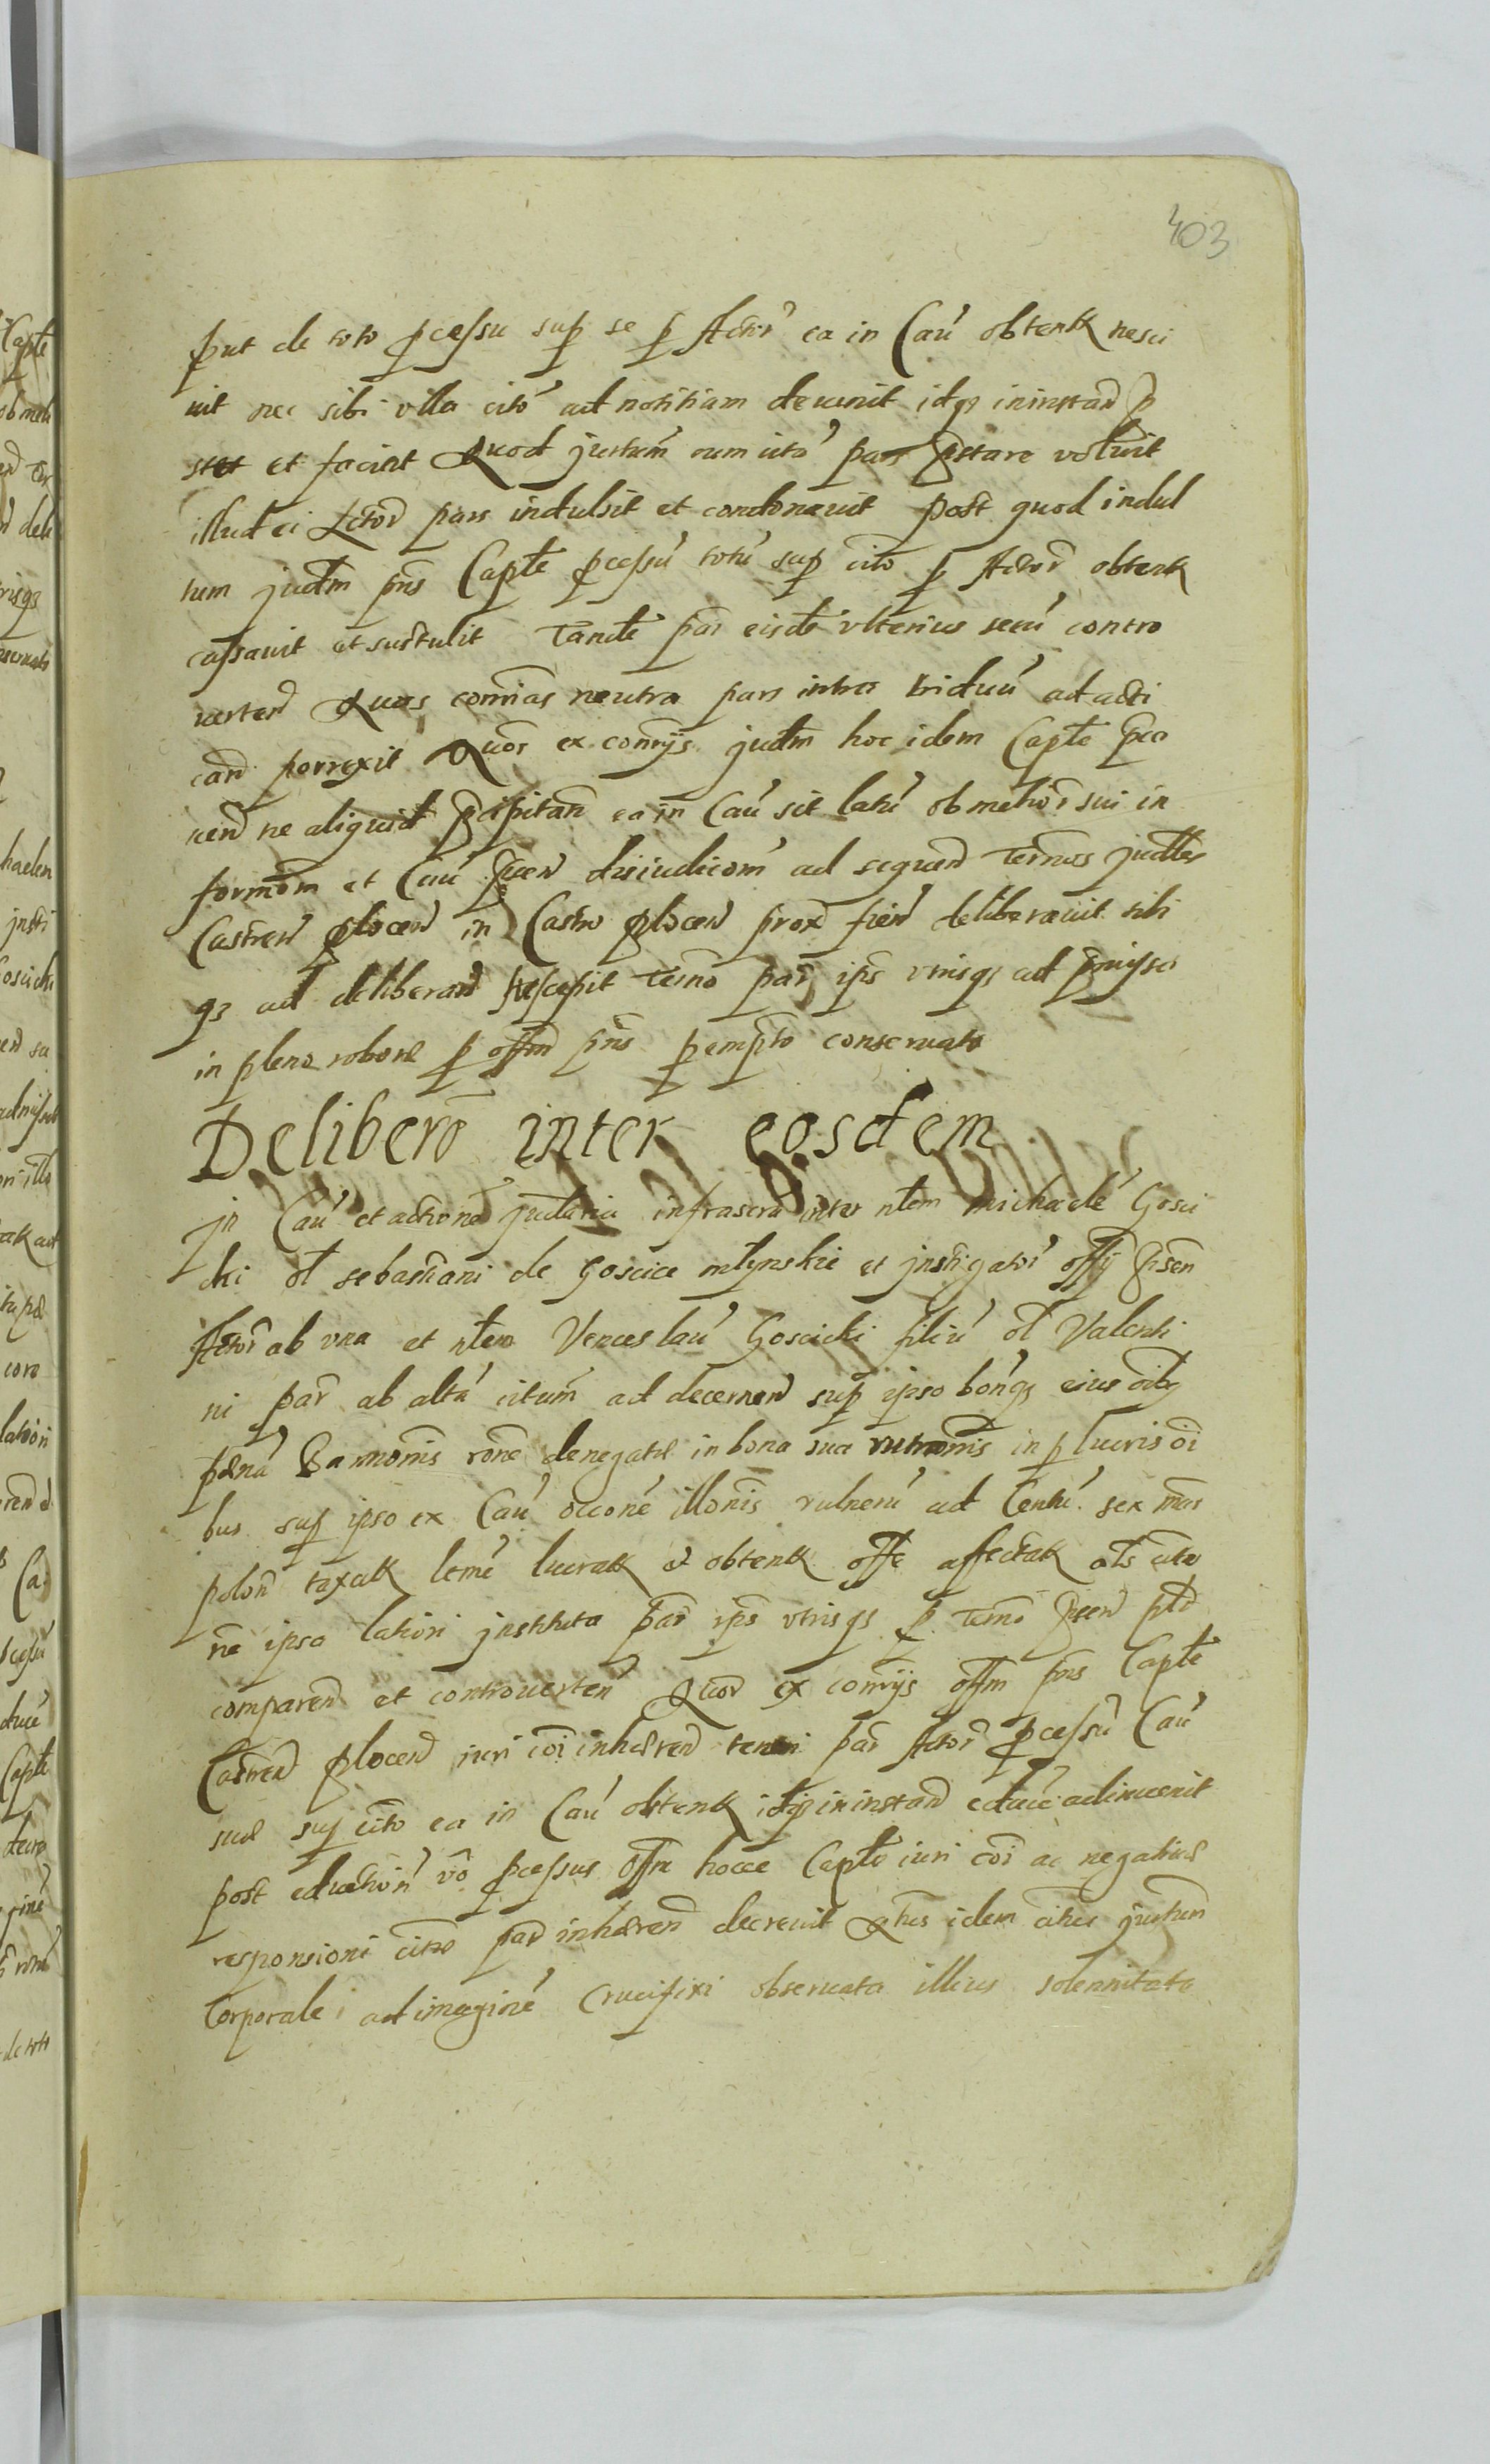 403
put de toto pcessu sup se p Actor ea in Cau obtent nesci
uit nec sibi vlla cito ad notitiam deuenit idqз in instan p
stet et faciet Quod jurtum cum cita pars pstare voluit
illud ei Actor pars indulsit et condonauit post quod indul
tum judm pns Capte pcessu totu sup cito p Actor obtent
cassauit et sustulit Tande par eisde vlterius secu contro
uerten Quas comias neutra pars intra triduu ad acti
can porrexit Quor ex comijs judm hoc idem Capte pca
uen ne aliquid pcipitan ea in Cau sit latu ob melior sui in
formom et Cau pnen disiudicom ad sequen Termos judtles
Castren plocen in Castro plocen prox fien deliberauit sibi
qз ad deliberan suscepit Termo par ips vtrisqз ad pmissa
in pleno robore p offm pns pempto conseruato
Delibero inter eosdem
jn Cau et actione judiaria infrascra inter nlem michaele Gosci
cki ol sebastiani de Goscice mlynskie et jnstigator offij psen
Actor ab vna et nlem Venceslau Goscicki filiu ol Valenti
ni par ab alta citum ad decernen sup ipso bonqз eius oibз
pœna Bannomis rone denegatæ in bona sua intromis in p lucris oi
bus sup ipso ex Cau occone illonis vulneru ad Centu sex mar
polon taxatt leme lucratt et obtent offe affectat als cita
ne ipsa latiori jnstituta par ips vtrisqз p Termo psen ptr
comparen et controuerten Quor ex comijs offm pns Capte
Castren plocen iuri coi inhæren teneri par Actor pcessu Cau
suæ sup cito ea in Cau obtent idqз in instan educe adinuenit
post eduction vo pcessus Offm hocce Capte iuri coi ac negatiuæ
responsioni citæ par inhæren decreuit Qtus idem citus jurtum
Corporale ad imagine Crucifixi obseruata illius solennitate